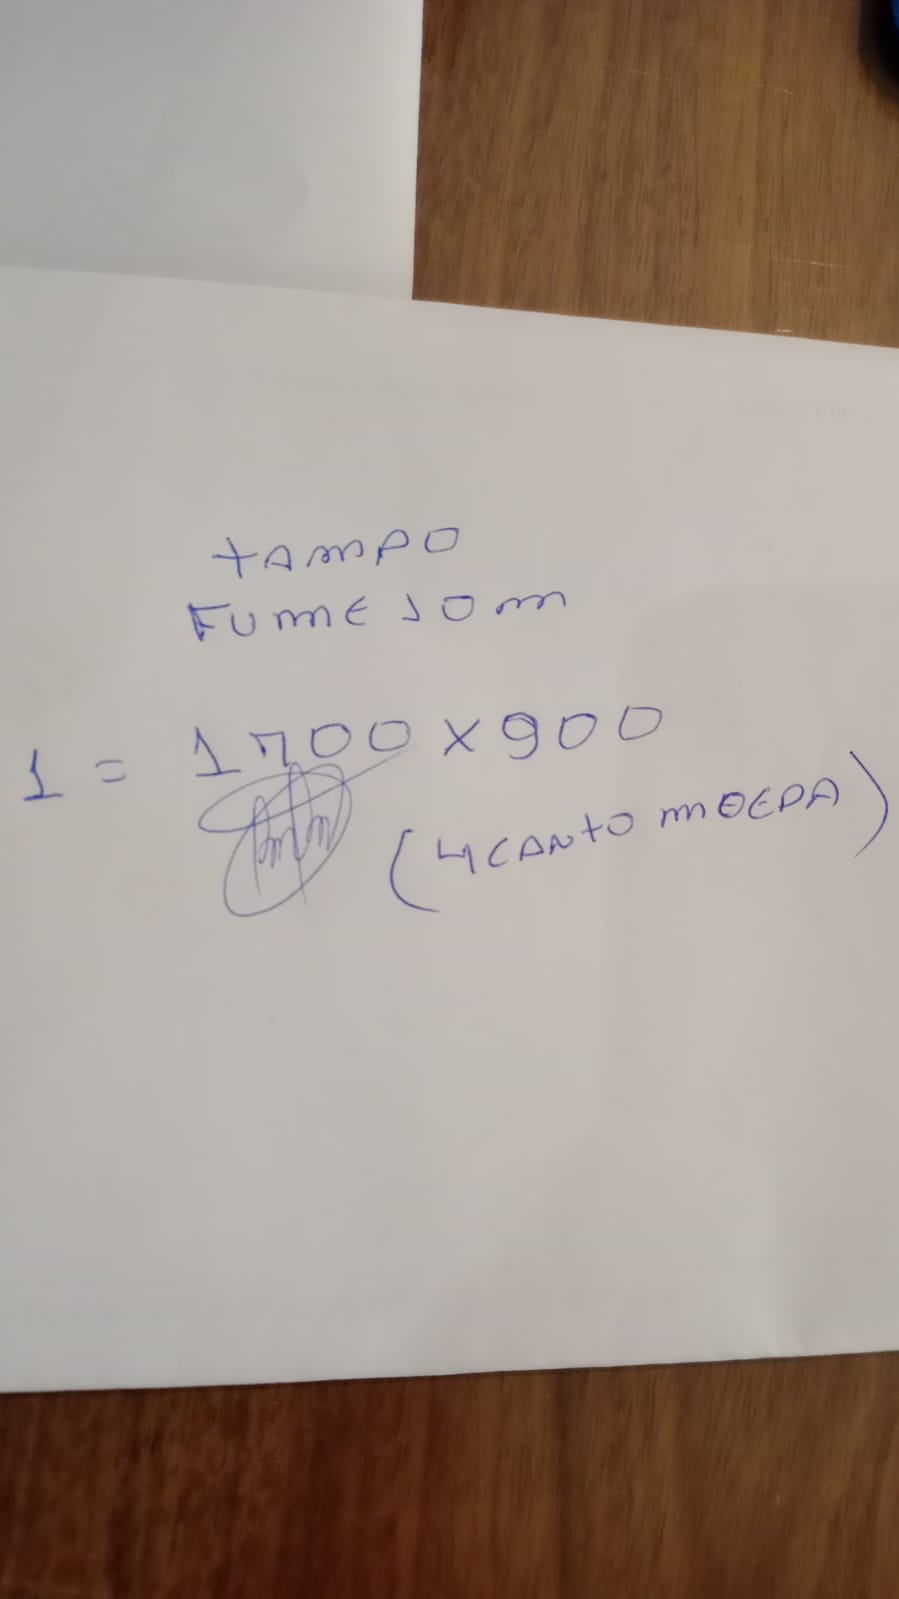 tAMPO
FUME 10m
1 = 1700 x 900
(4 CANtO MOEDA)